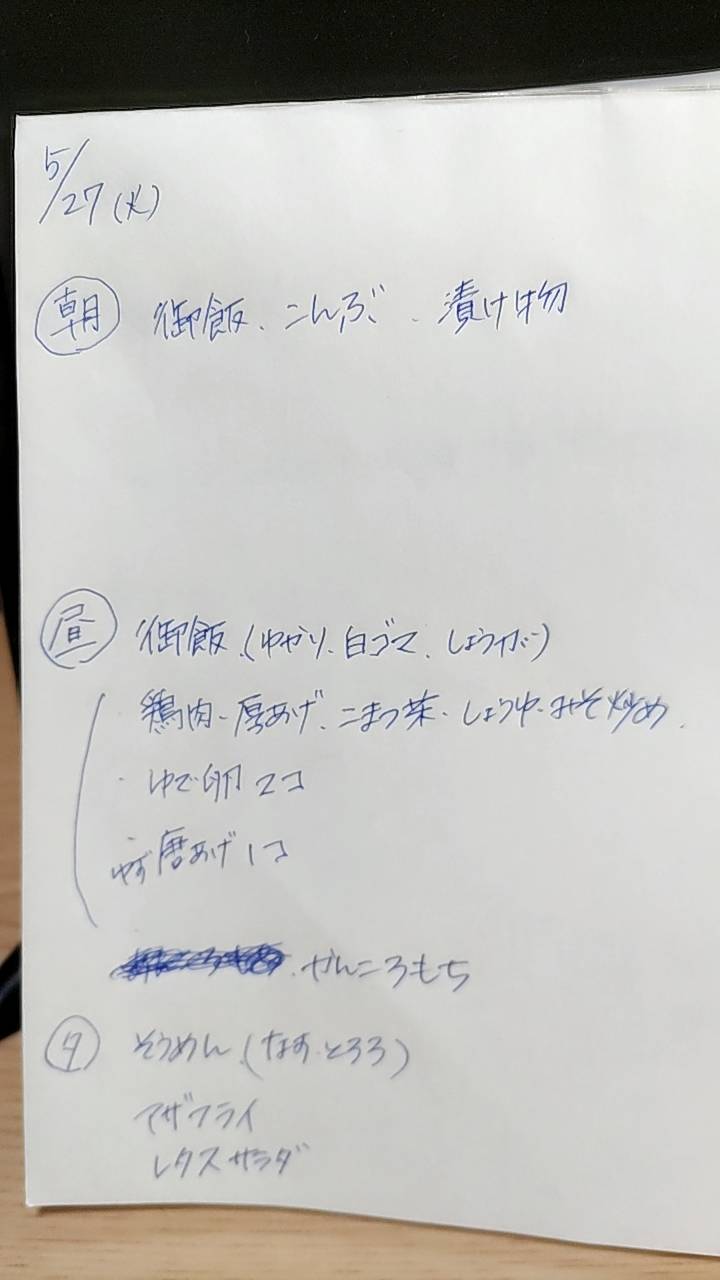 5/27(火)
朝 御飯、こんぶ、漬け物
昼 御飯、(ゆかり、白ゴマ、しょうが)
・鶏肉、厚あげ、こまつ菜、しょうゆ、みそ炒め、
・ゆで卵 2コ
唐あげ 1コ
、せんころもち
夕 そうめん、(なす、とろろ)
アジフライ
レタスサラダ